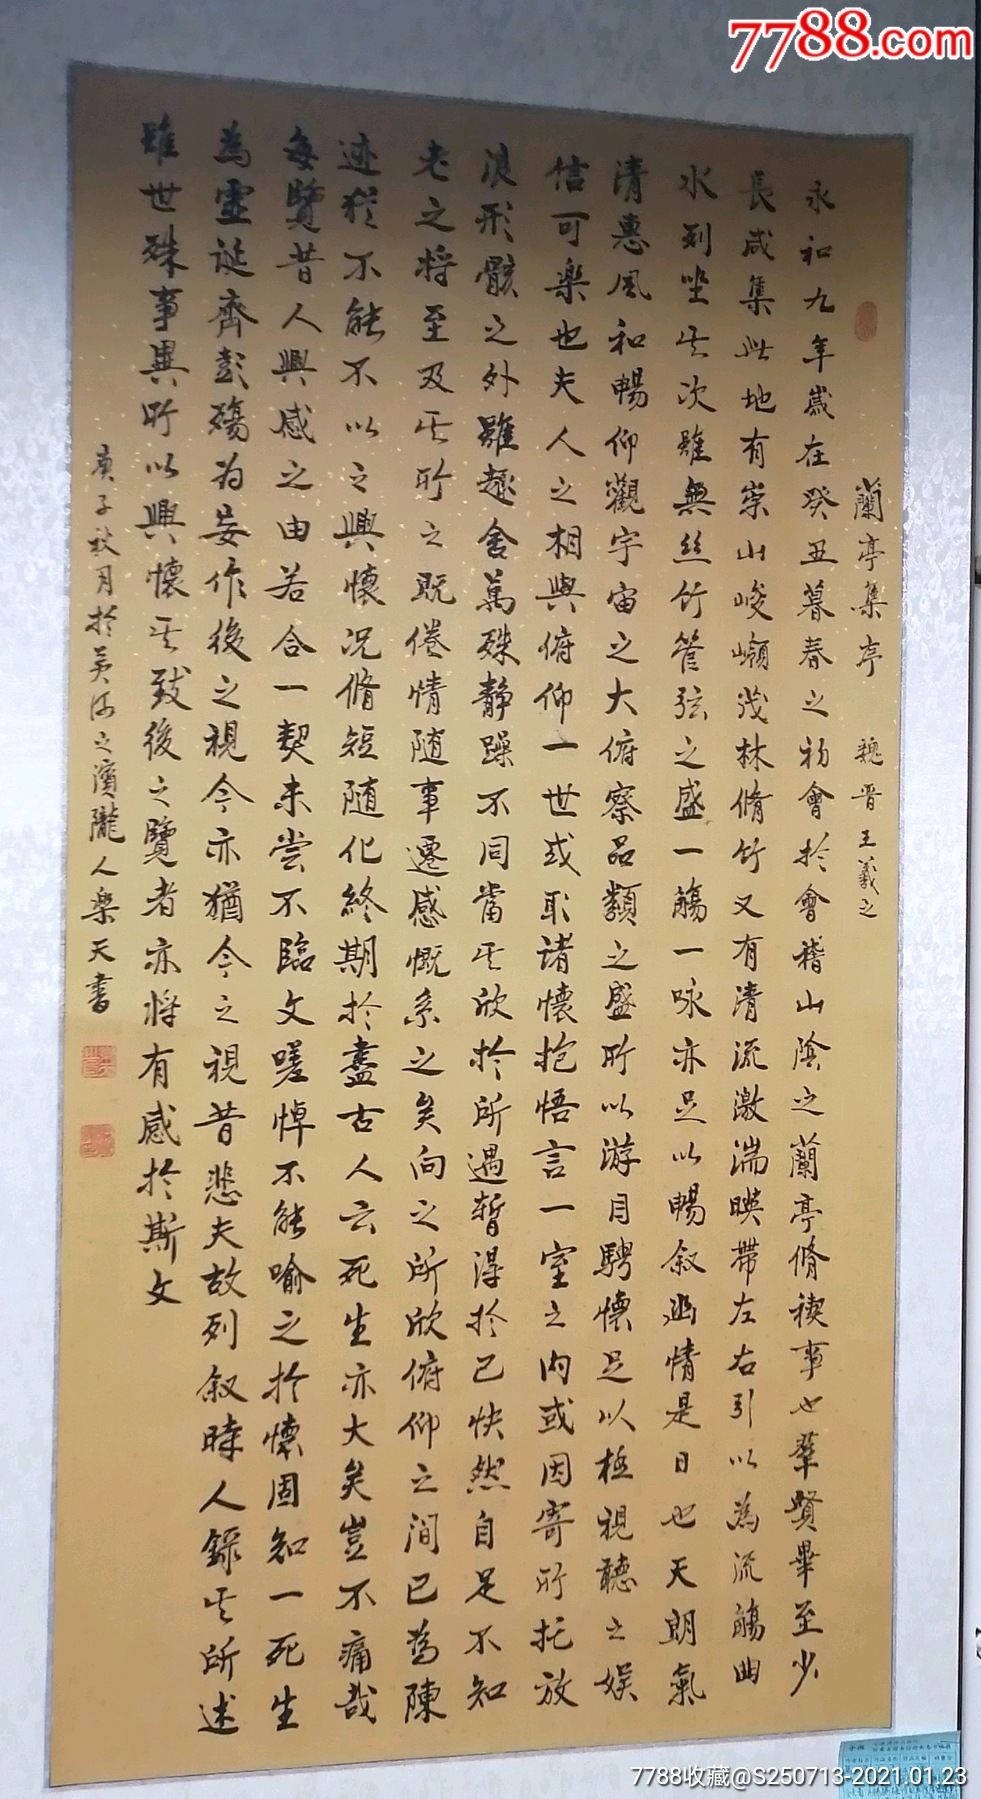 7788.com
蘭亭集亭 魏晋王羲之
永和九年歲在癸丑暮春之初會於會稽山陰之蘭亭脩禊事也羣賢畢至少
長咸集此地有崇山峻嶺茂林脩竹又有清流激湍映帶左右引以為流觴曲
水列坐其次雖無丝竹管弦之盛一觴一咏亦足以暢叙幽情是日也天朗氣
清惠風和暢仰觀宇宙之大俯察品類之盛所以游目騁懐足以極視聽之娱
信可樂也夫人之相與俯仰一世或取诸懐抱悟言一室之内或因寄所托放
浪形骸之外雖趣舍萬殊静躁不同當其欣於所遇暫得於己快然自足不知
老之将至及其所之既倦情随事遷感慨系之矣向之所欣俯仰之间已為陳
迹犹不能不以之興懐况脩短随化終期於盡古人云死生亦大矣豈不痛哉
每覽昔人興感之由若合一契未尝不臨文嗟悼不能喻之於懐固知一死生
為虚诞齊彭殤为妄作後之視今亦猶今之視昔悲夫故列叙時人録其所述
雖世殊事異所以興懐其致後之覽者亦将有感於斯文
庚子秋月於黄河之濱隴人樂天書
7788收藏@S250713-2021.01.23